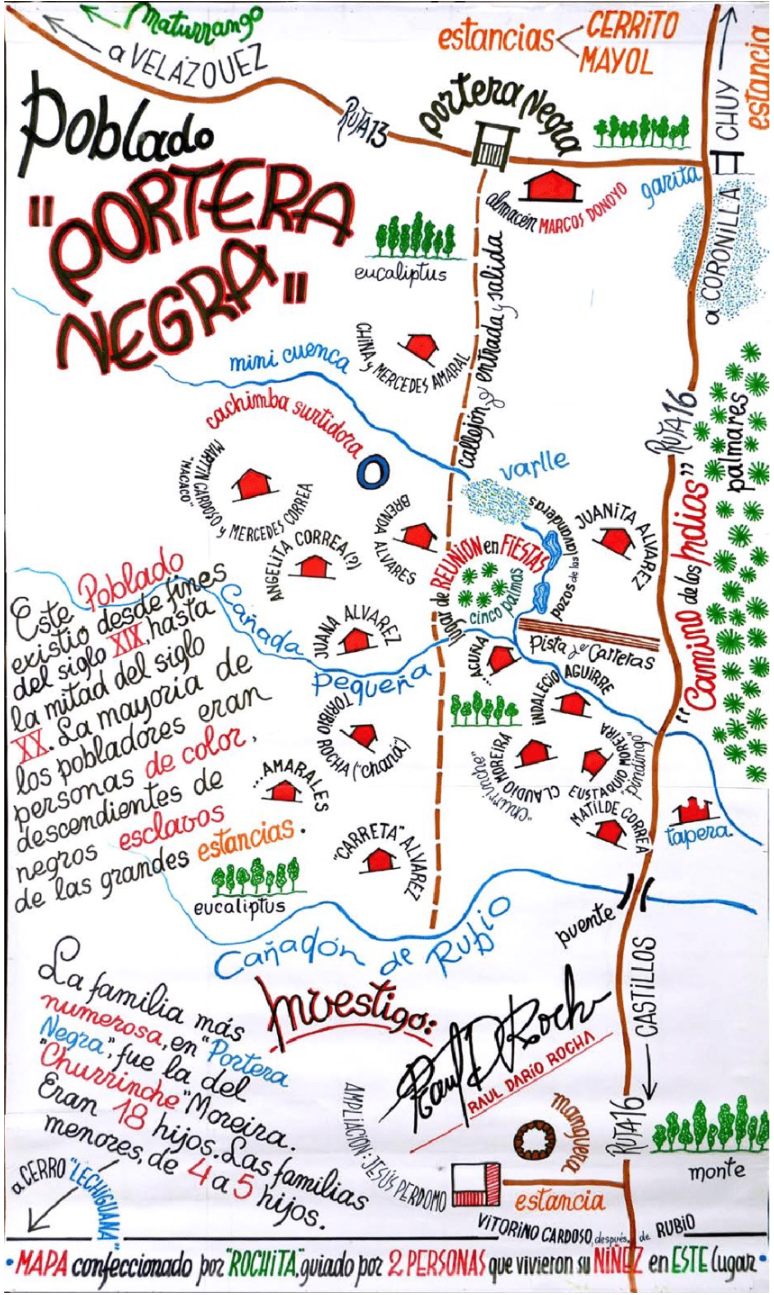 maturrango
a VELÁZQUEZ
estancias
CERRITO
MAYOL
CHUY
estancia
Poblado
"PORTERA
NEGRA"
RUTA 13
PORTERA NEGRA
almacén MARCOS DONOYO
garita
a CORONILLA
eucaliptus
CHINA y MERCEDES AMARAL
callejón de entrada y salida
mini cuenca
cachimba surtidora
MARTIN CARDOSO y MERCEDES CORREA
"MACACO"
BRENDA ALVARES
ANGELITA CORREA(?)
varlle
pozos de las lavanderas
JUANITA ALVAREZ
RUTA 16
palmares
"Camino de los Indios"
lugar de REUNION en FIESTAS
cinco palmas
Pista de Carreras
Cañada
Pequeña
JUANA ALVAREZ
ACUÑA
...
INDALECIO AGUIRRE
TORIBIO ROCHA ("chana")
CLAUDIO MOREIRA
"churrinche"
EUSTAQUIO MOREIRA
MATILDE CORREA
...AMARALES
"CARRETA" ALVAREZ
tapera
Este Poblado
existió desde fines
del siglo XIX, hasta
la mitad del siglo
XX. La mayoría de
los pobladores eran
personas de color,
descendientes de
negros esclavos
de las grandes estancias.
eucaliptus
Cañadón de Rubio
puente
CASTILLOS
La familia más
numerosa, en "Portera
Negra", fue la del
"Churrinche" Moreira.
Eran 18 hijos. Las familias
menores, de 4 a 5 hijos.
Investigó:
Raul D Rocha
RAUL DARÍO ROCHA
AMPLIACIÓN: JESÚS PERDOMO
manguera
RUTA 16
monte
estancia
VITORINO CARDOSO, después, de RUBIO
a CERRO "LECHIGUANA"
• MAPA confeccionado por "ROCHITA", guiado por 2 PERSONAS que vivieron su NIÑEZ en ESTE lugar •